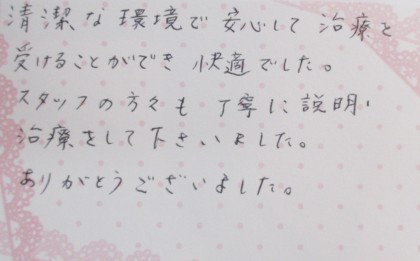 清潔な環境で安心して治療を
受けることができ快適でした。
スタッフの方々も丁寧に説明、
治療をして下さいました。
ありがとうございました。